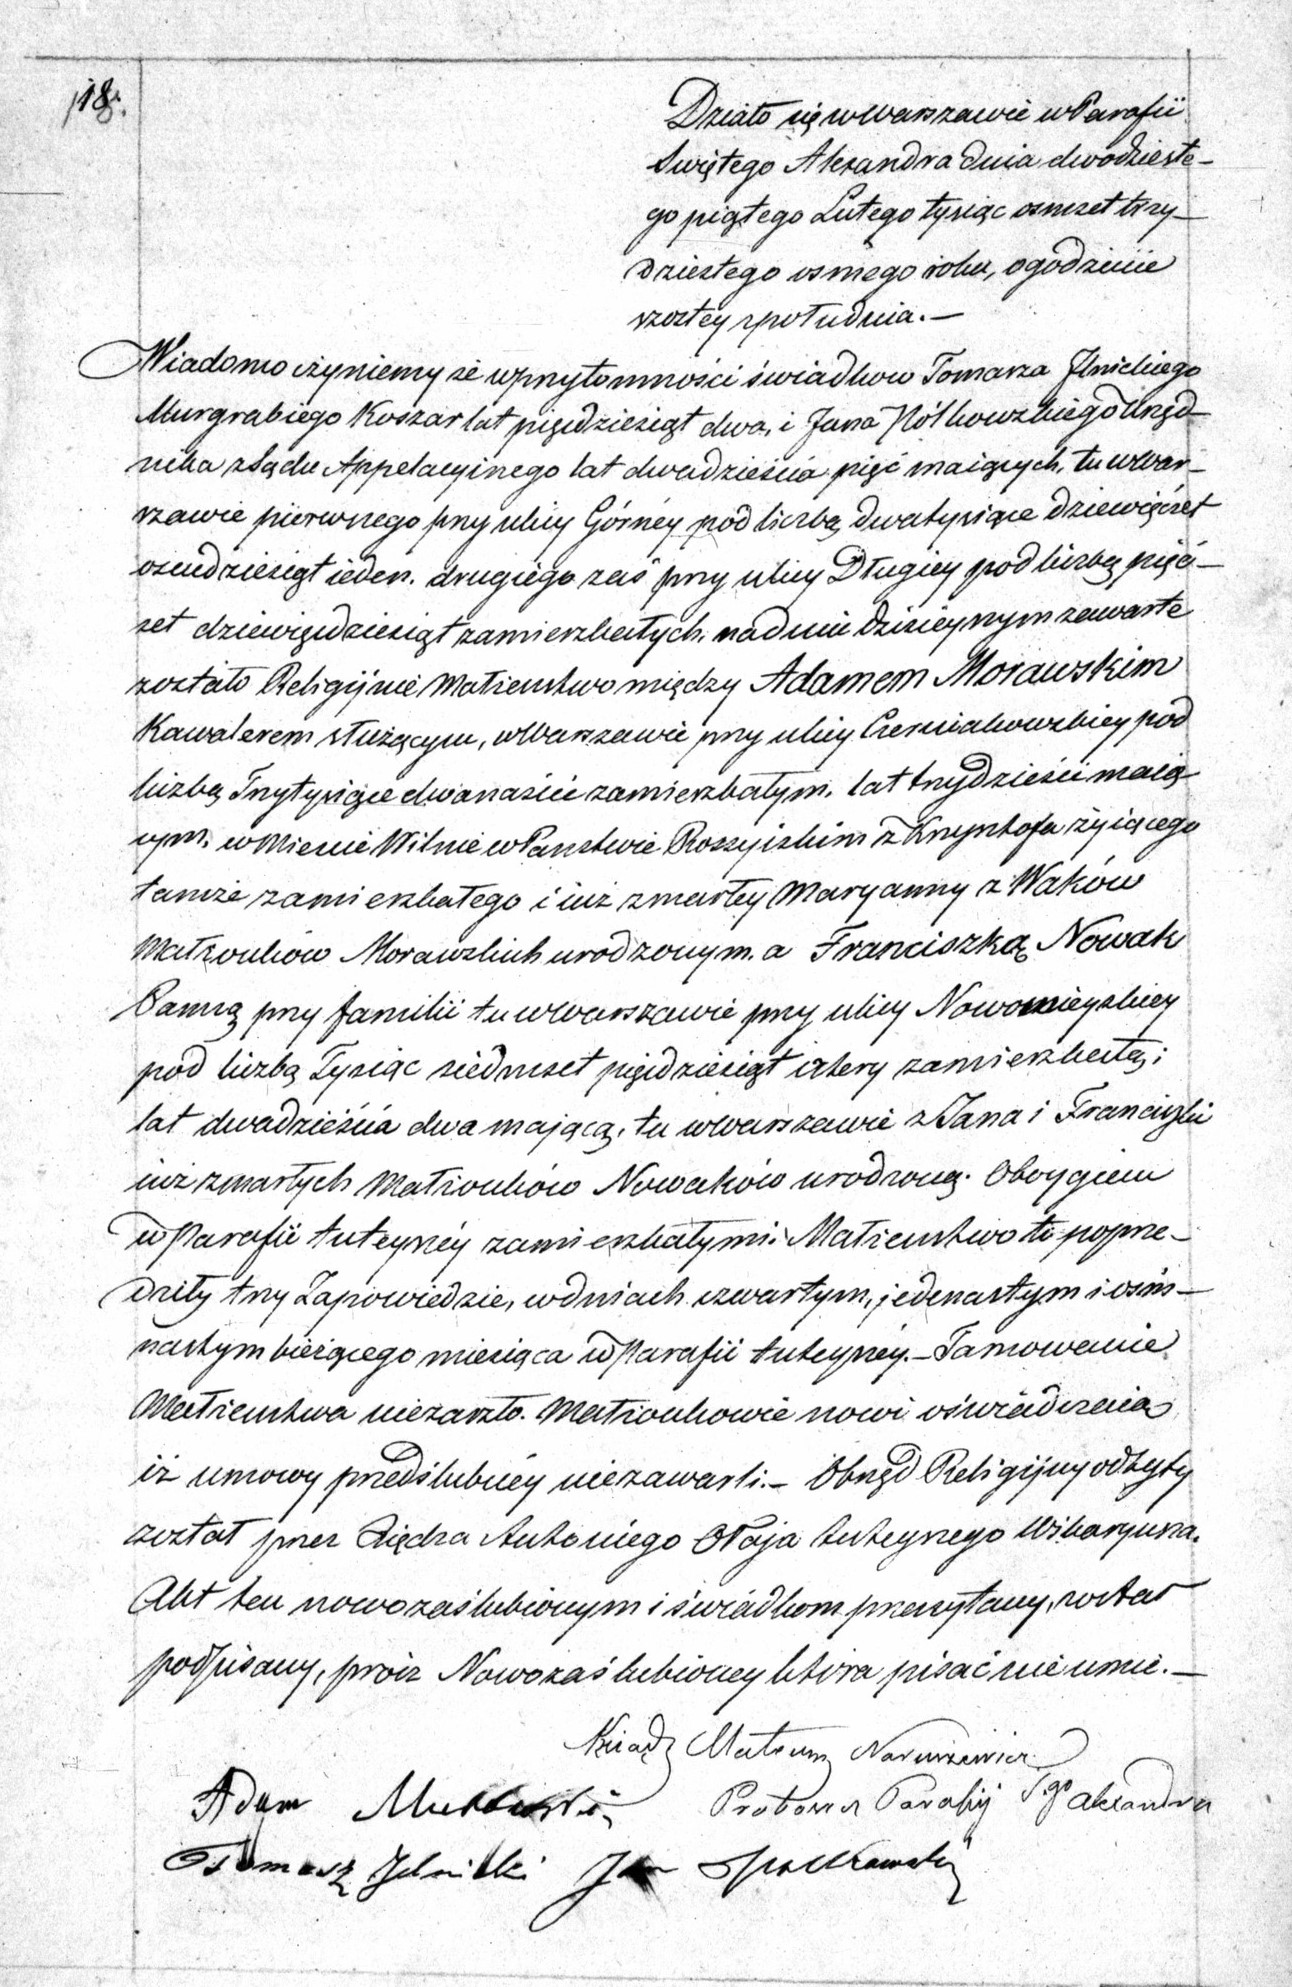 18.
Działo się w Warszawie w Parafii
Swiętego Alexandra dnia dwudzieste-
go piątego Lutego tysiąc osmset trzy-
dziestego osmego roku, o godzinie
szostey z południa.—
Wiadomo czyniemy że w przytomności świadkow Tomasza Jlnickiego
Murgrabiego Koszar lat pięcdziesiąt dwa, i Jana Urzęd-
nika z Sądu Appelacyinego lat dwadzieścia pięć maiących, tu w War-
szawie pierwszego przy ulicy Górnéy pod liczbą dwatysiące dziewięćset
osiemdziesiąt ieden. drugiego zaś przy ulicy Długiey pod liczbą pięć-
set dziewięcdziesiąt zamieszkałych. na dniu dzisieyszym zawarte
zostało Religijnie Małżeństwo między Adamem Morawskim
Kawalerem służącym, w Warszawie przy ulicy Czerniakowskiey pod
liczbą Trzytysiące dwanaście zamieszkałym. lat trzydzieści maią-
cym. w Miescie Wilnie w Panstwie Rossyiskim z Krzysztofa żyiącego
tamże zamieszkałego i iuż zmarłey Maryanny z Waków
Małżonków Morawskich urodzonym. a Franciszką Nowak
Panną przy familii tu w Warszawie przy ulicy Nowomieyskiey
pod liczbą Tysiąc siedmset pięcdziesiąt cztery zamieszkałą,
lat dwadzieścia dwa mającą, tu w Warszawie z Jana i Franciszki
iuż zmarłych Małżonków Nowaków urodzoną. Oboygiem
w Parafii tuteyszéy zamieszkałymi. Małżeństwo to poprze-
dziły trzy Zapowiedzie, w dniach czwartym, jedenastym i osm-
nastym bieżącego miesiąca w Parafii tuteyszéy.— Tamowanie
Małżeństwa niezaszło. Małżonkowie nowi oświadczaia
iż umowy przedślubnéy niezawarli.— Obrzęd Religijny odbyty
został przez Xiędza Antoniego tuteyszego Wikaryusza.
Akt ten nowozaślubionym i świadkom przeczytany, został
podpisany, prócz Nowozaślubioney która pisać nie umie.—
Ksiądz Mateusz Naruszewicz
Adam Morawski Proboszcz Parafij S.go Alexandra
Tomasz Jlnicki Jan